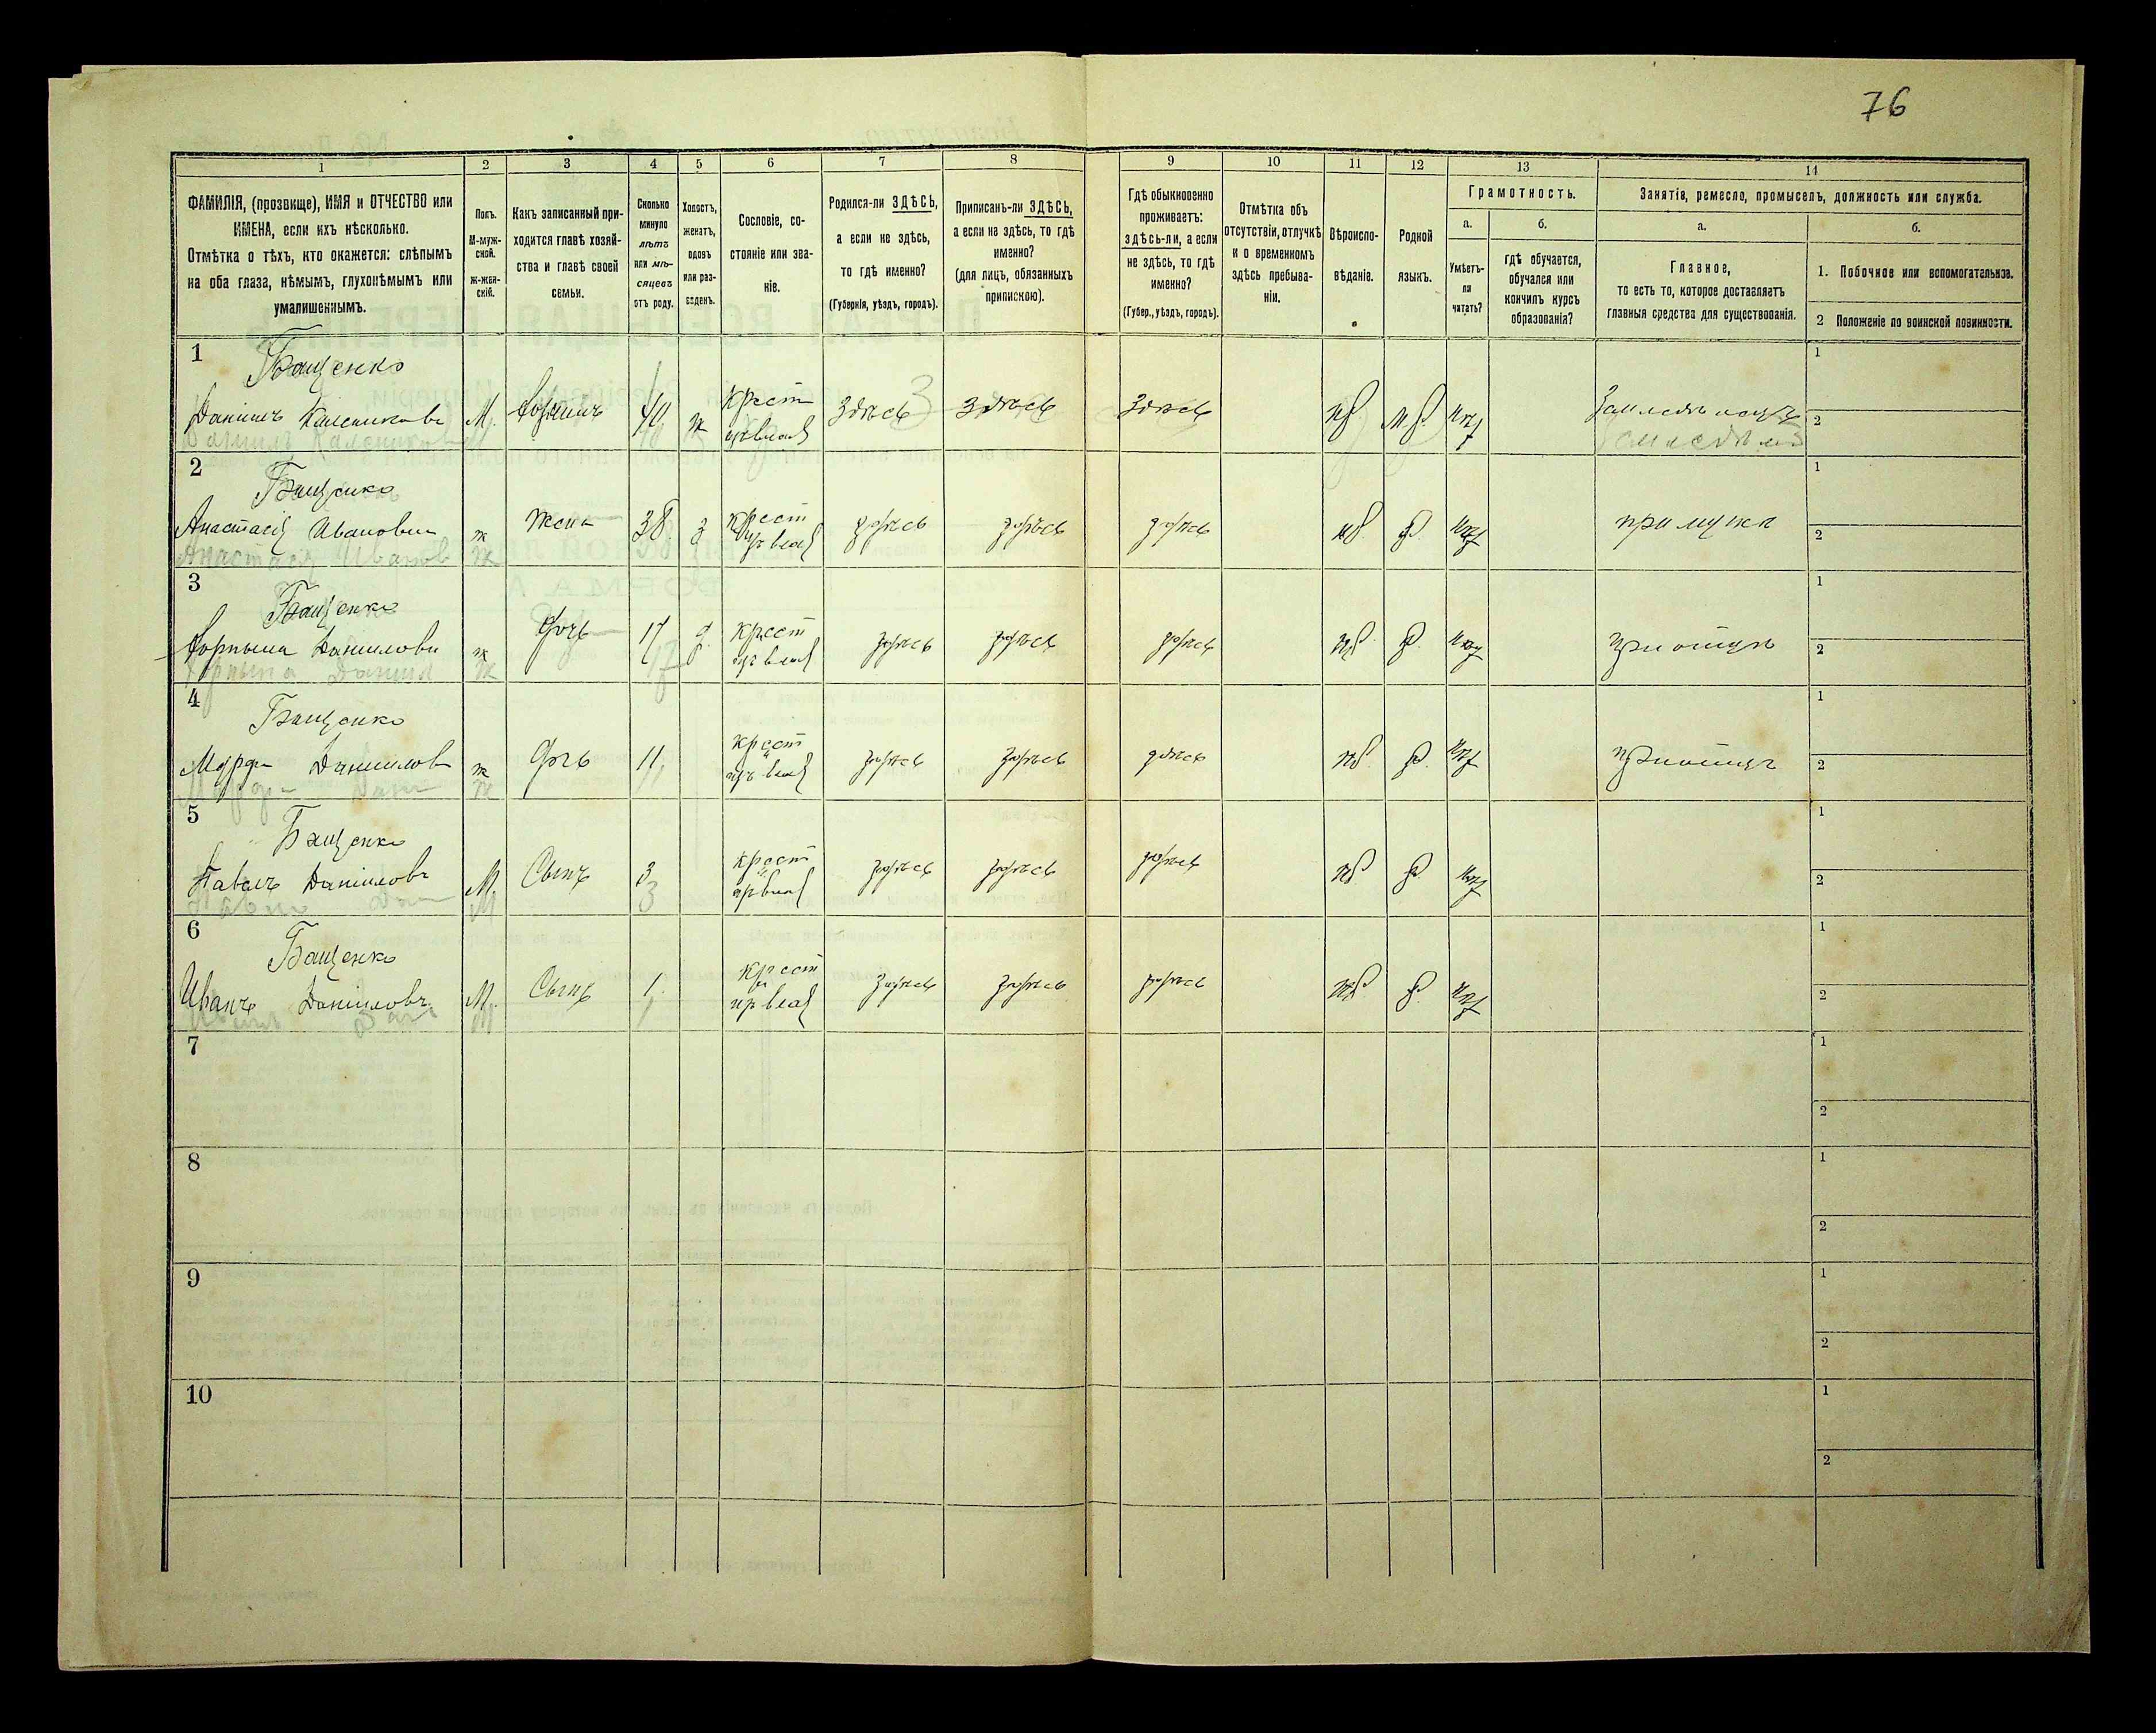 76
1 2 3 4 5 6 7 8 9 10 11 12 13 14
ФАМИЛІЯ, (прозвище), ИМЯ и ОТЧЕСТВО или
ИМЕНА, если ихъ нѣсколько.
Отмѣтка о тѣхъ, кто окажется: слѣпымъ
на оба глаза, нѣмымъ, глухонѣмымъ или
умалишеннымъ.
Полъ.
М-муж-
ской.
ж-жен-
скій.
Какъ записанный при-
ходится главѣ хозяй-
ства и главѣ своей
семьи.
Сколько
минуло
лѣтъ
или мѣ-
сяцевъ
отъ роду.
Холостъ,
женатъ,
вдовъ
или раз-
веденъ.
Сословіе, со-
стояніе или зва-
ніе.
Родился-ли ЗДѢСЬ,
а если не здѣсь,
то гдѣ именно?
(Губернія, уѣздъ, городъ).
Приписанъ-ли ЗДѢСЬ,
а если не здѣсь, то гдѣ
именно?
(для лицъ, обязанныхъ
припискою).
Гдѣ обыкновенно
проживаетъ:
здѣсь-ли, а если
не здѣсь, то гдѣ
именно?
(Губер., уѣздъ, городъ).
Отмѣтка объ
отсутствіи, отлучкѣ
и о временномъ
здѣсь пребыва-
ніи.
Вѣроиспо-
вѣданіе.
Родной
языкъ.
Грамотность.
а.
Умѣетъ-
ли
читать?
б.
гдѣ обучается,
обучался или
кончилъ курсъ
образованія?
Занятія, ремесло, промыселъ, должность или служба.
а.
Главное,
то есть то, которое доставляетъ
главныя средства для существованія.
б.
1. Побочное или вспомогательное.
2 Положеніе по воинской повинности.
1
Бащенко
Даніилъ
М.
40
ж
крест
здѣсь
здѣсь
здѣсь
1
2
2
Бащенко
Анастасія Иванова
ж
жена
38
з
крест
здѣсь
здѣсь
здѣсь
при мужѣ
1
2
3
Бащенко
Даніилова
ж
дочь
17
д
крест
здѣсь
здѣсь
здѣсь
при отцѣ
1
2
4
Бащенко
Даніилов
ж
дочь
11
крест
здѣсь
здѣсь
здѣсь
при отцѣ
1
2
5
Бащенко
Павелъ Даніиловъ
М.
Сынъ
3
крест
здѣсь
здѣсь
здѣсь
1
2
6
Бащенко
Иванъ Даніиловъ
М.
Сынъ
1
крест
здѣсь
здѣсь
здѣсь
1
2
7
1
2
8
1
2
9
1
2
10
1
2